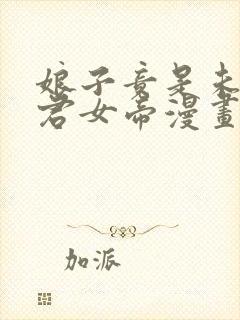 娘子竟是未
君女帝漫畫
加派